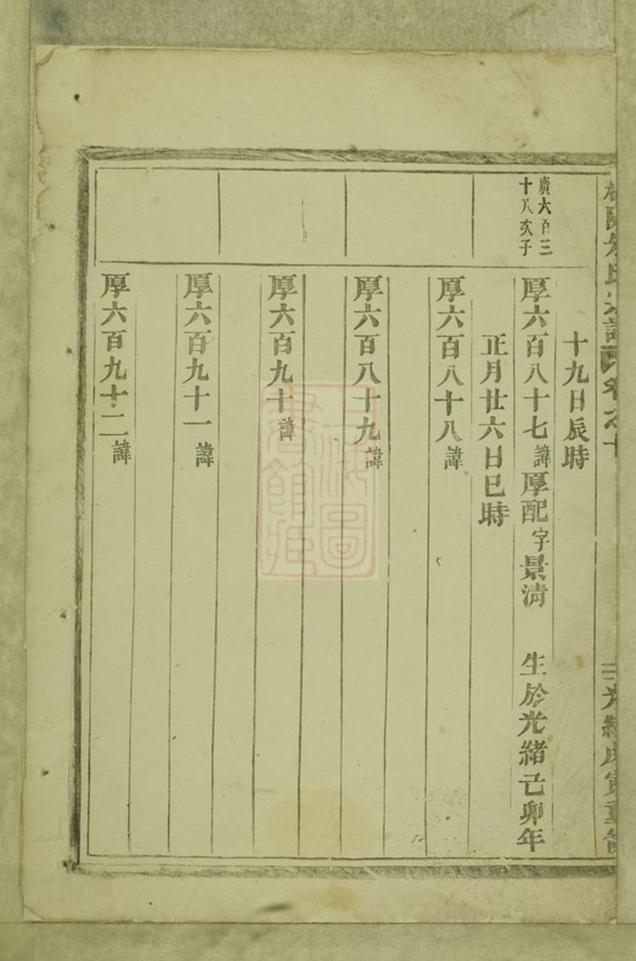 氏宗譜 卷之十
光緒戊寅重
十九日辰時
廣六百三
十八次子
厚六百八十七諱厚配字景清 生於光緒己卯年
正月廿六日巳時
厚六百八十八諱
厚六百八十九諱
厚六百九十諱
厚六百九十一諱
厚六百九十二諱
上海圖
書館藏